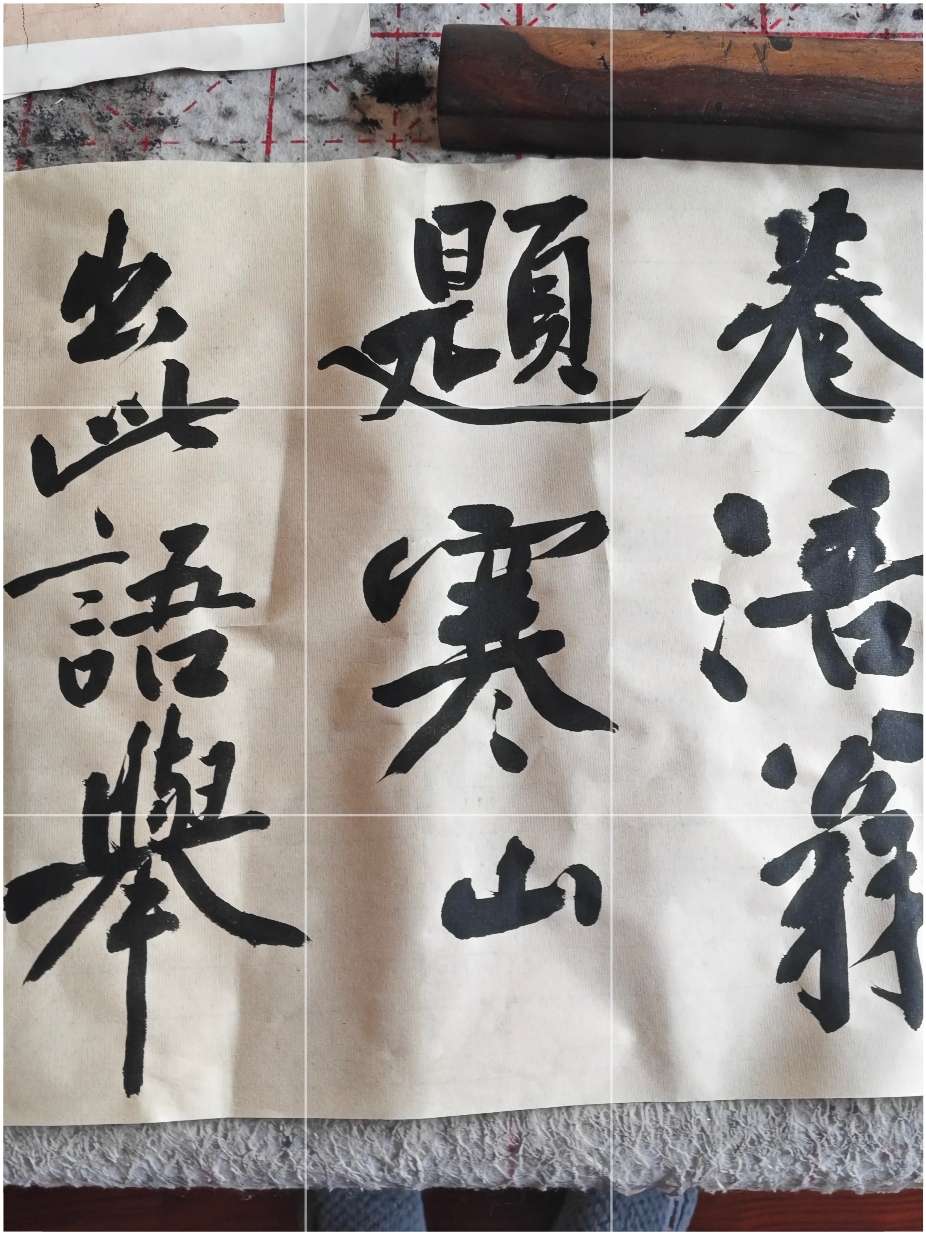 卷涪翁
題寒山
出此語舉